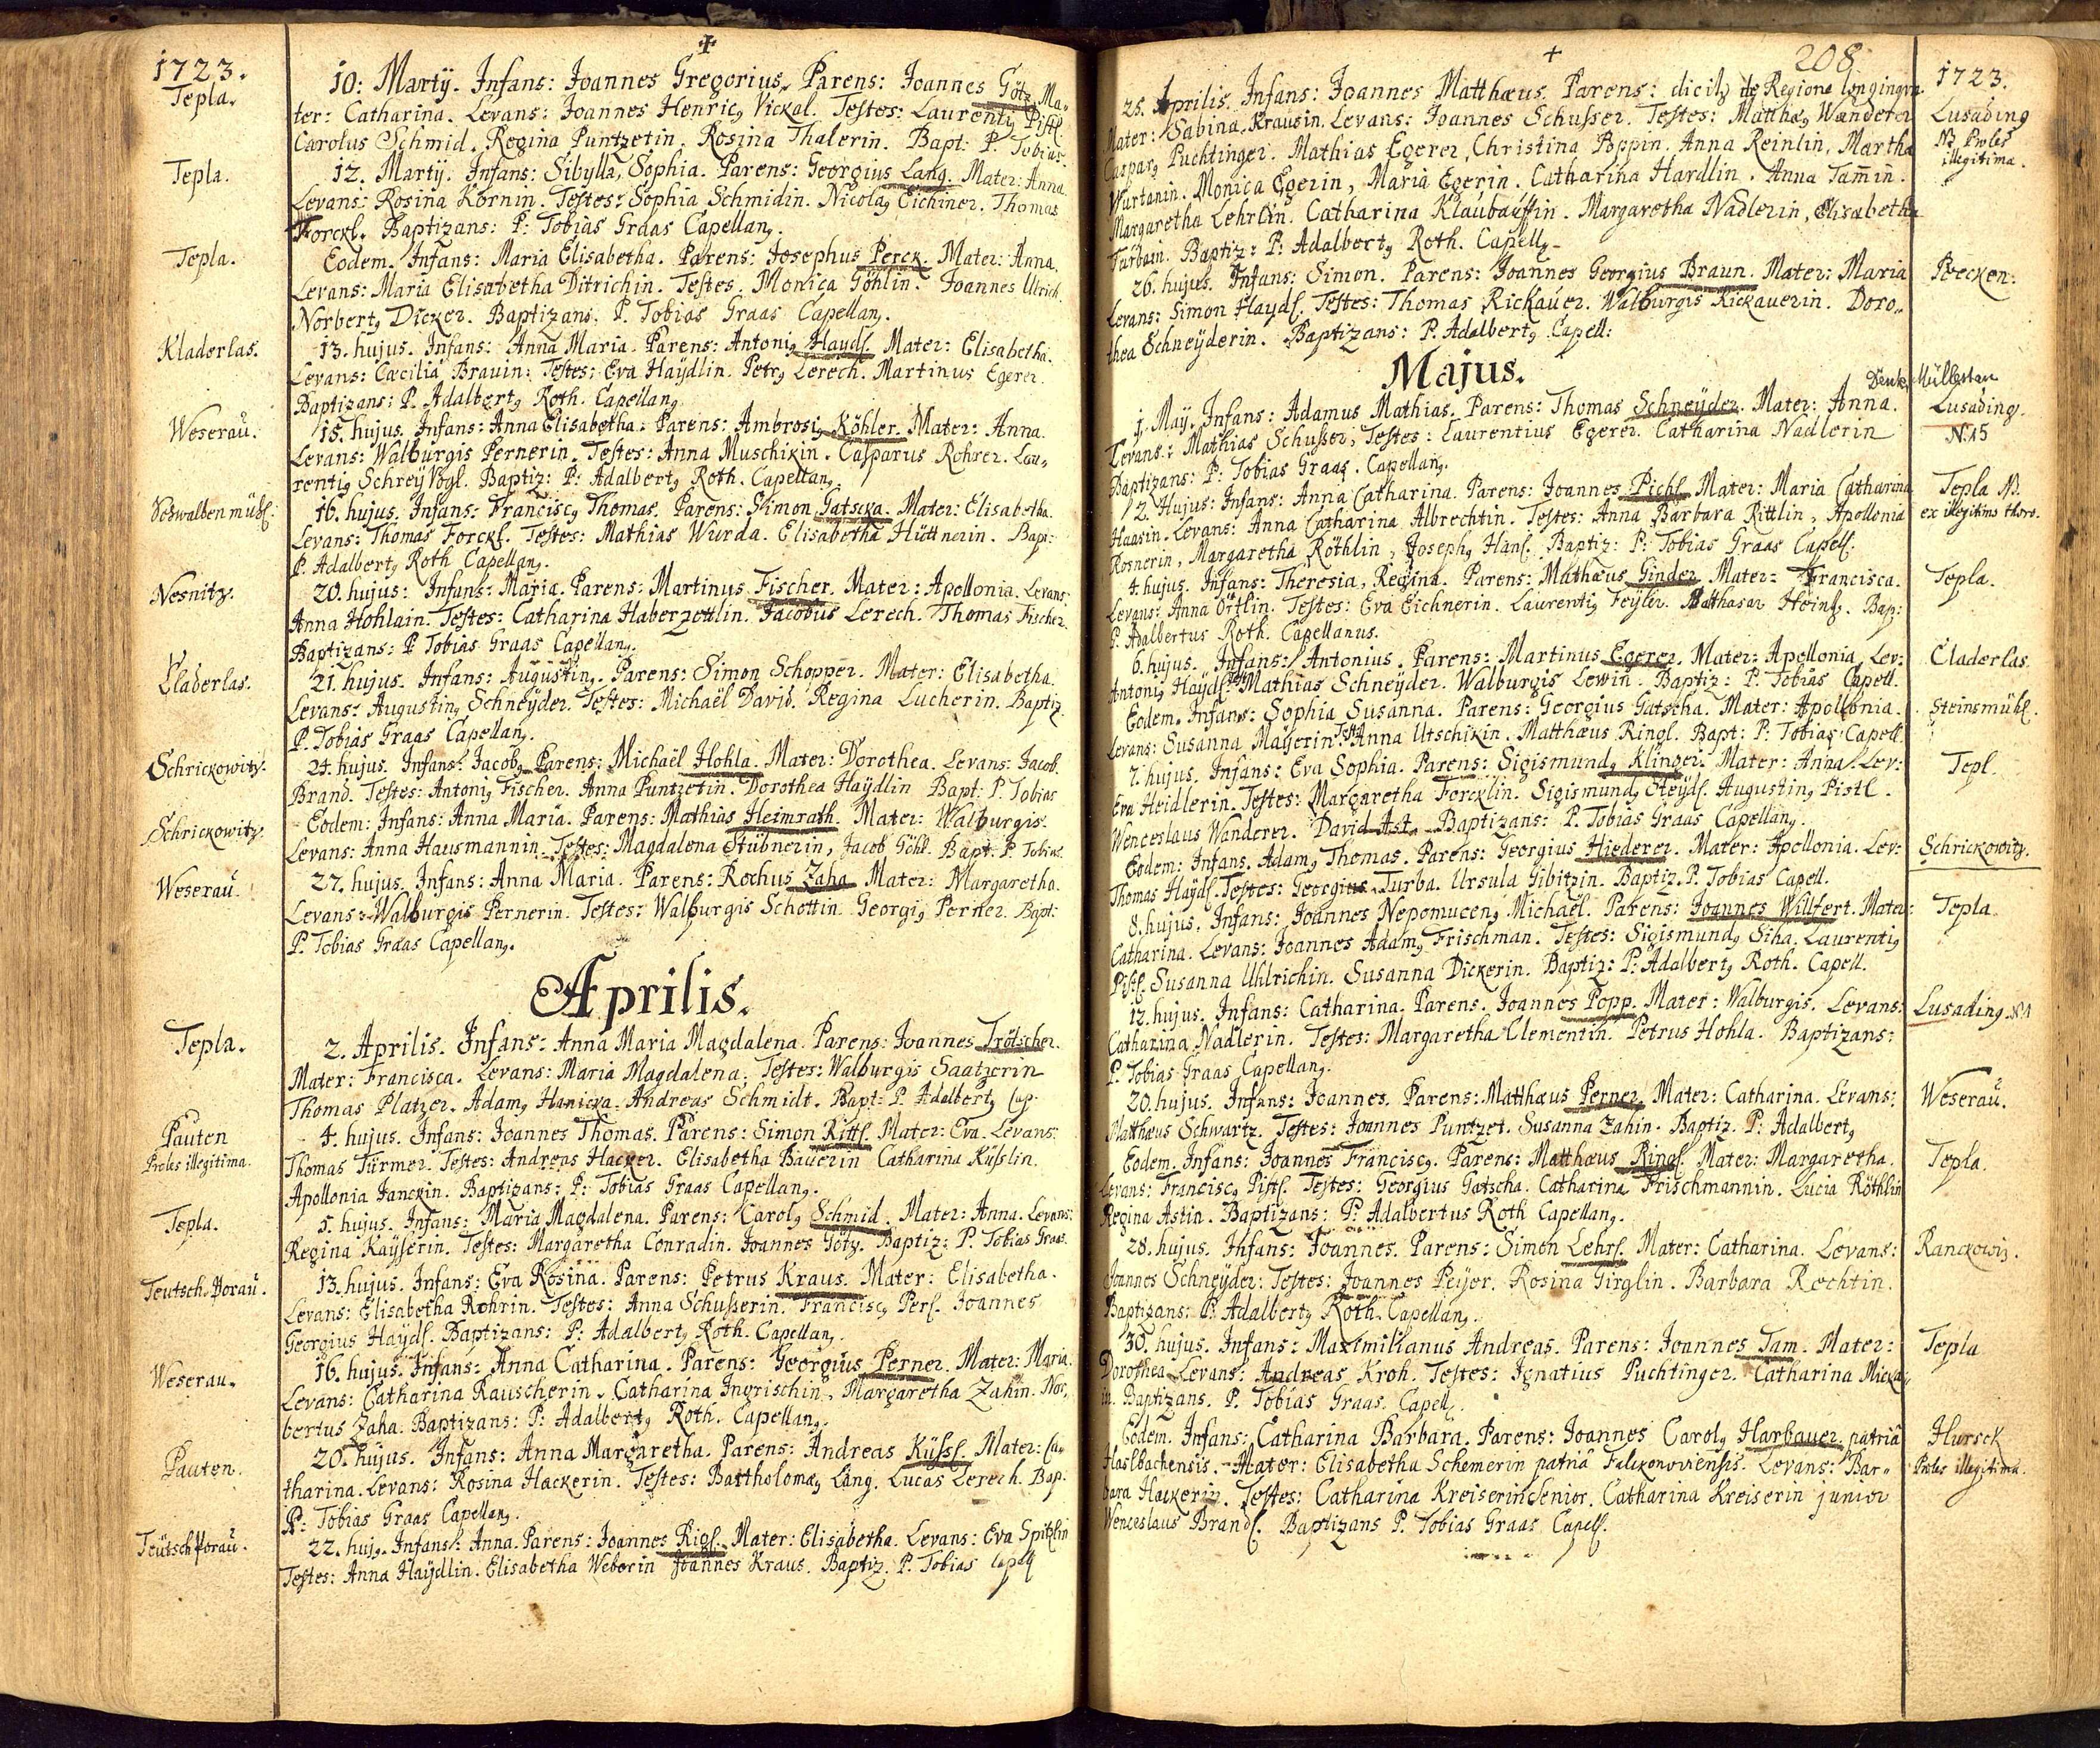 1723.
Tepla.
10: Martÿ. Infans: Joannes Gregorius. Parens: Joannes Götz. Ma-
ter: Catharina. Levans: Joannes Henricꝰ Vickal. Testes: Laurentiꝰ Pistl.
Carolus Schmid. Regina Puntzetin. Rosina Thalerin. Bapt: P. Tobias.
Tepla.
12. Martÿ. Infans: Sibylla, Sophia. Parens: Georgius Lang. Mater: Anna.
Levans: Rosina Kornin. Testes: Sophia Schmidin. Nicolaꝰ Eichner. Thomas
Forckl. Baptizans: P: Tobias Graas Capellanꝰ.
Tepla.
Eodem. Infans: Maria Elisabetha. Parens: Josephus Perck. Mater: Anna.
Levans: Maria Elisabetha Ditrichin. Testes. Monica Göhlin. Joannes Ulrich.
Norbertꝰ Dicker. Baptizans: P. Tobias Graas Capellanꝰ.
Kladerlas.
13. hujus. Infans: Anna Maria. Parens: Antoniꝰ Haydl. Mater: Elisabetha.
Levans: Cæcilia Brauin: Testes: Eva Haÿdlin. Petrꝰ Lerech. Martinus Egerer.
Baptizans: P. Adalbertꝰ Roth. Capellanꝰ
Weseraŭ.
15. hujus. Infans: Anna Elisabetha. Parens: Ambrosiꝰ Köhler. Mater: Anna.
Levans: Walburgis Pernerin. Testes: Anna Muschikin. Casparus Rohrer. Lau-
rentiꝰ Schreÿ Vogl. Baptiz: P: Adalbertꝰ Roth. Capellanꝰ.
Schwalbenmühl:
16. hujus. Infans: Franciscꝰ Thomas. Parens: Simon Gatscka. Mater: Elisabetha.
Levans: Thomas Forckl. Testes: Mathias Wurda. Elisabetha Hüttnerin. Bapt:
P. Adalbertꝰ Roth Capellanꝰ.
Nesnitz.
20. hujus: Infans: Maria. Parens: Martinus Fischer. Mater: Apollonia. Levans:
Anna Hohlain. Testes: Catharina Haberzettlin. Jacobus Lerech. Thomas Fischer.
Baptizans: P Tobias Graas Capellanꝰ.
Claderlas.
21. hujus. Infans: Augustinꝰ. Parens: Simon Schopper. Mater: Elisabetha.
Levans: Augustinꝰ Schneÿder. Testes: Michaël David. Regina Lucherin. Baptiz
P. Tobias Graas Capellanꝰ.
Schrickowitz.
24. hujus. Infans: Jacobꝰ Parens: Michaël Hohla. Mater: Dorothea. Levans: Jacob.
Brand. Testes: Antoniꝰ Fischer. Anna Puntzetin. Dorothea Haÿdlin Bapt. P. Tobias
Schrickowitz.
Eodem: Infans: Anna Maria. Parens: Mathias Heimrath. Mater: Walburgis.
Levans: Anna Hausmannin. Testes: Magdalena Stübnerin, Jacob Göhl. Bapt. P. Tobias.
Weseraŭ.
27. hujus. Infans: Anna Maria. Parens: Rochus Zaha. Mater: Margaretha.
Levans: Walburgis Pernerin. Testes: Walburgis Schottin Georgiꝰ Perner. Bapt:
P. Tobias Graas Capellanꝰ.
Aprilis.
Tepla.
2. Aprilis. Infans: Anna Maria Magdalena. Parens: Joannes Trötscher.
Mater: Francisca. Levans: Maria Magdalena. Testes: Walburgis Saatzerin
Thomas Platzer. Adamꝰ Hanicka. Andreas Schmidt. Bapt: P. Adalbertꝰ Cap.
Pauten
Proles illegitima.
4. hujus. Infans: Joannes Thomas. Parens: Simon Rittl. Mater: Eva. Levans:
Thomas Türmer. Testes: Andreas Hacker. Elisabetha Bauerin Catharina Küsslin.
Apollonia Janckin. Baptizans: P: Tobias Graas Capellanꝰ.
Tepla.
5. hujus. Infans: Maria Magdalena. Parens: Carolꝰ Schmid. Mater: Anna. Levans:
Regina Kaÿserin. Testes: Margaretha Conradin. Joannes Götz. Baptiz: P. Tobias Graas.
Teutsch. Borau.
13. hujus. Infans: Eva Rosina. Parens: Petrus Kraus. Mater: Elisabetha.
Levans: Elisabetha Rohrin. Testes: Anna Schusserin. Franciscꝰ Perl. Joannes
Georgius Haÿdl. Baptizans: P: Adalbertꝰ Roth. Capellanꝰ.
Weserau.
16. hujus. Infans: Anna Catharina. Parens: Georgius Perner. Mater: Maria.
Levans: Catharina Rauscherin. Catharina Ingrischin. Margaretha Zahin. Nor-
bertus Zaha. Baptizans: P: Adalbertꝰ Roth. Capellanꝰ.
Pauten.
20. hujus. Infans: Anna Margaretha. Parens: Andreas Küssl. Mater: Ca-
tharina. Levans: Rosina Hackerin. Testes: Bartholomæꝰ Lang. Lucas Lerech. Bap:
P: Tobias Graas Capellanꝰ.
Teütsch Poraŭ.
22. hujꝰ. Infans: Anna. Parens: Joannes Rigl. Mater: Elisabetha. Levans: Eva Spitzlin
Testes: Anna Haÿdlin. Elisabetha Weberin Joannes Kraus. Baptiz. P. Tobias Capell
208
1723.
25. Aprilis. Infans: Joannes Matthæus. Parens: dicitꝰ de Regione longinqua
Lusading
NB Proles
illegitima.
Mater: Sabina Krausin. Levans: Joannes Schusser. Testes: Matthæꝰ Wanderer
Casparꝰ Puchtinger. Mathias Egerer, Christina Poppin. Anna Reinlin, Martha
Wurtanin. Monica Egerin, Maria Egerin. Catharina Hardlin. Anna Tam̄in.
Margaretha Lehrlin. Catharina Klaubauffin. Margaretha Nadlerin, Elisabetha
Turbain. Baptiz: P: Adalbertꝰ Roth. Capellꝰ.
Poecken.
26. hujus. Infans: Simon. Parens: Joannes Georgius Braun. Mater: Maria
Levans: Simon Haydl. Testes: Thomas Rickauer. Walburgis Rickauerin. Doro-
thea Schneÿderin. Baptizans: P. Adalbertꝰ Capell:
Majus.
Müllertan
Lusading.
N. 15
1. Maÿ. Infans: Adamus Mathias. Parens: Thomas Schneÿder. Mater: Anna.
Levans: Mathias Schusser. Testes: Laurentius Egerer. Catharina Nadlerin
Baptizans: P: Tobias Graas. Capellanꝰ.
Tepla NB.
ex illegitimo thoro.
2. Hujus: Infans: Anna Catharina. Parens: Joannes Pichl. Mater: Maria Catharina
Haasin. Levans: Anna Catharina Albrechtin. Testes: Anna Barbara Rittlin, Apollonia
Rosnerin, Margaretha Röthlin, Josephꝰ Hänl. Baptiz: P: Tobias Graas Capell.
Tepla.
4. hujus. Infans: Theresia, Regina. Parens: Mathæus Ginder. Mater: Francisca.
Levans: Anna Örtlin. Testes: Eva Eichnerin. Laurentiꝰ Feÿler. Balthasar Heinl. Bap:
P. Adalbertus Roth. Capellanus.
Claderlas.
6. hujus. Infans: Antonius. Parens: Martinus Egerer. Mater: Apollonia Lev:
Antoniꝰ Haÿdl. Test: Mathias Schneÿder. Walburgis Lewin. Baptiz: P. Tobias Capell.
Steinsmühl.
Eodem. Infans: Sophia Susanna. Parens: Georgius Gatscha. Mater: Apollonia.
Levans: Susanna Mayerin. Test: Anna Utschikin. Matthæus Ringl. Bapt: P: Tobias Capell.
Tepl.
7. hujus. Infans: Eva Sophia. Parens: Sigismundꝰ Klinger. Mater: Anna. Lev:
Eva Heidlerin. Testes: Margaretha Forcklin. Sigismundꝰ Heÿdl. Augustinꝰ Pistl.
Wenceslaus Wanderer. David Ast. Baptizans: P. Tobias Graas Capellanꝰ.
Schrickowitz.
Eodem: Infans. Adamꝰ Thomas. Parens: Georgius Hiederer. Mater: Apollonia. Lev:
Thomas Haÿdl. Testes: Georgius Turba. Ursula Gibitzin. Baptiz. P. Tobias Capell.
Tepla.
8. hujus. Infans: Joannes Nepomucenꝰ Michaël. Parens: Joannes Willfert. Mater:
Catharina. Levans: Joannes Adamꝰ Frischman. Testes: Sigismundꝰ Siha. Laurentiꝰ
Pistl. Susanna Uhlrichin. Susanna Dickerin. Baptiz: P: Adalbertꝰ Roth. Capell.
Lusading. N 1
12. hujus. Infans: Catharina. Parens. Joannes Popp. Mater: Walburgis. Levans:
Catharina Nadlerin. Testes: Margaretha Clementin. Petrus Hohla. Baptizans:
P. Tobias Graas Capellanꝰ.
Weseraŭ.
20. hujus. Infans: Joannes. Parens: Matthæus Perner. Mater: Catharina. Levans:
Matthæus Schwartz. Testes: Joannes Puntzet. Susanna Zahin. Baptiz. P: Adalbertꝰ
Tepla.
Eodem. Infans: Joannes Franciscꝰ. Parens: Matthæus Ringl. Mater: Margaretha.
Levans: Franciscꝰ Pistl. Testes: Georgius Gatscha. Catharina Frischmannin. Lucia Röthlin
Regina Astin. Baptizans: P: Adalbertus Roth Capellanꝰ.
Ranckowiz.
28. hujus. Infans: Joannes. Parens: Simon Lehrl. Mater: Catharina. Levans:
Joannes Schneÿder: Testes: Joannes Peÿer. Rosina Girglin. Barbara Rechtin.
Baptizans: P: Adalbertꝰ Roth. Capellanꝰ.
Tepla
30. hujus. Infans: Maximilianus Andreas. Parens: Joannes Tam. Mater:
Dorothea Levans: Andreas Kroh. Testes: Ignatius Puchtinger. Catharina Micka-
in. Baptizans. P. Tobias Graas. Capellꝰ.
Hursck
Proles illegitima.
Eodem. Infans: Catharina Barbara. Parens: Joannes Carolꝰ Harbauer patriâ
Haslbachensis. Mater: Elisabetha Schemerin patriâ Falckenovirensis. Levans: Bar-
bara Hackerin. Testes: Catharina Kreiserin Senior. Catharina Kreiserin junior
Wenceslaus Brandl. Baptizans P. Tobias Graas Capell.